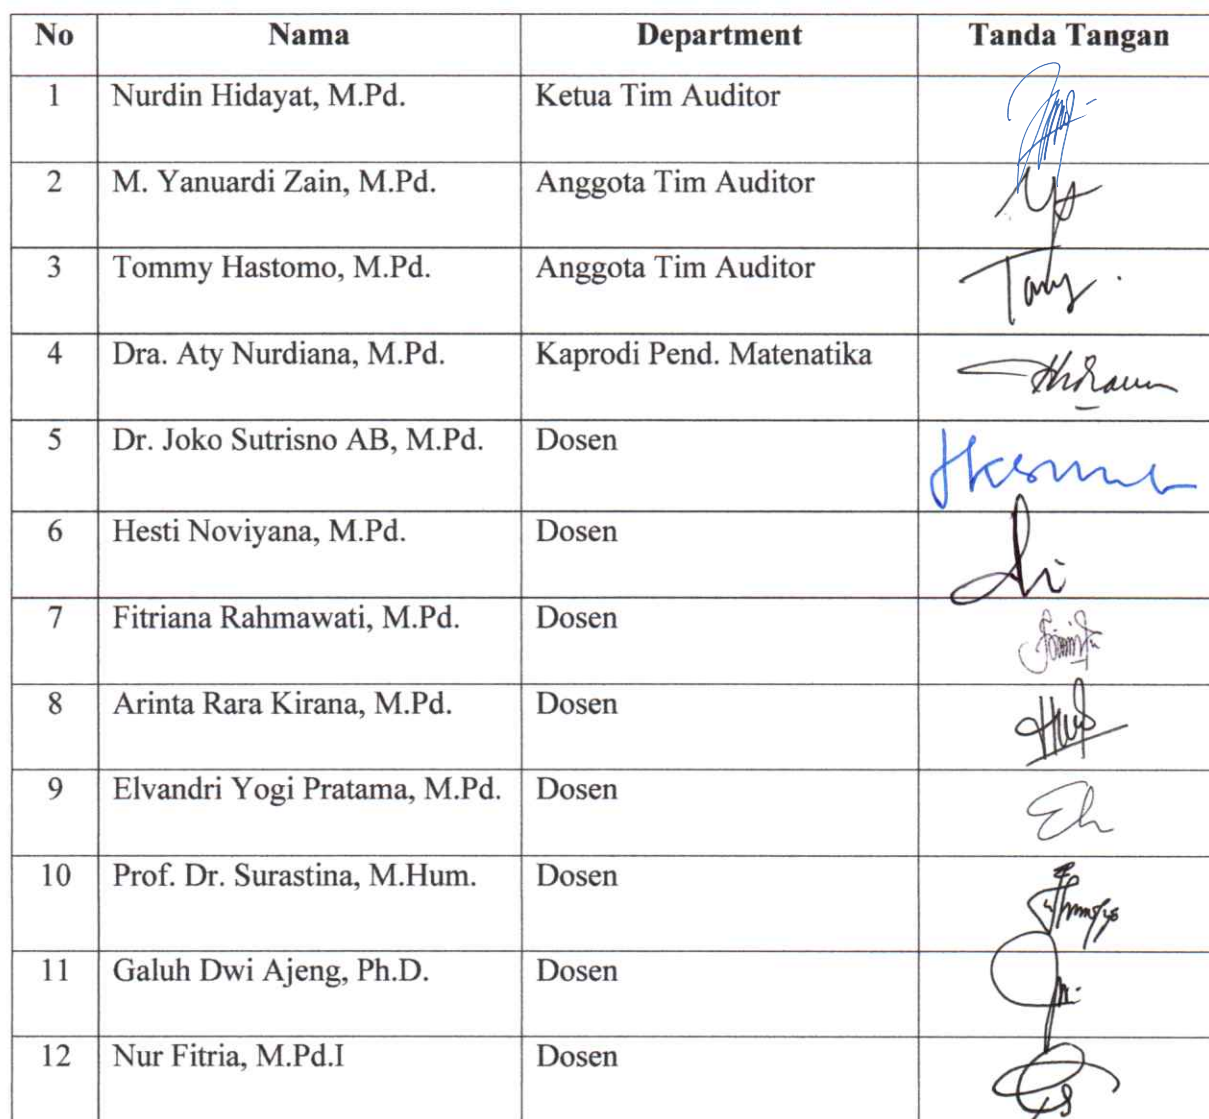 No Nama Department Tanda Tangan
1 Nurdin Hidayat, M.Pd. Ketua Tim Auditor
2 M. Yanuardi Zain, M.Pd. Anggota Tim Auditor
3 Tommy Hastomo, M.Pd. Anggota Tim Auditor
4 Dra. Aty Nurdiana, M.Pd. Kaprodi Pend. Matenatika
5 Dr. Joko Sutrisno AB, M.Pd. Dosen
6 Hesti Noviyana, M.Pd. Dosen
7 Fitriana Rahmawati, M.Pd. Dosen
8 Arinta Rara Kirana, M.Pd. Dosen
9 Elvandri Yogi Pratama, M.Pd. Dosen
10 Prof. Dr. Surastina, M.Hum. Dosen
11 Galuh Dwi Ajeng, Ph.D. Dosen
12 Nur Fitria, M.Pd.I Dosen